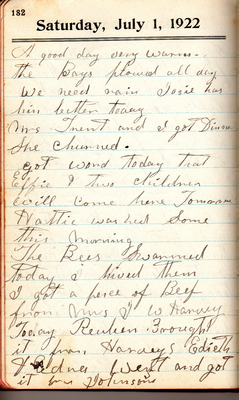 182
Saturday, July 1, 1922
A good day very warm.
the boys plowed all day
We need rain Josie has
him better today
Mrs Trent and I got Dinner
She churned.
got word today that
Effie & two children
will come here Tomorrow
Hattie washed some
this Morning
The Bees Swarmed
today I hived them
I got a peece of Beef
from Mrs J W Harvey
Today Reuben Brought
it from Harveys Edieth
& Edner Went and got
it Johnsons